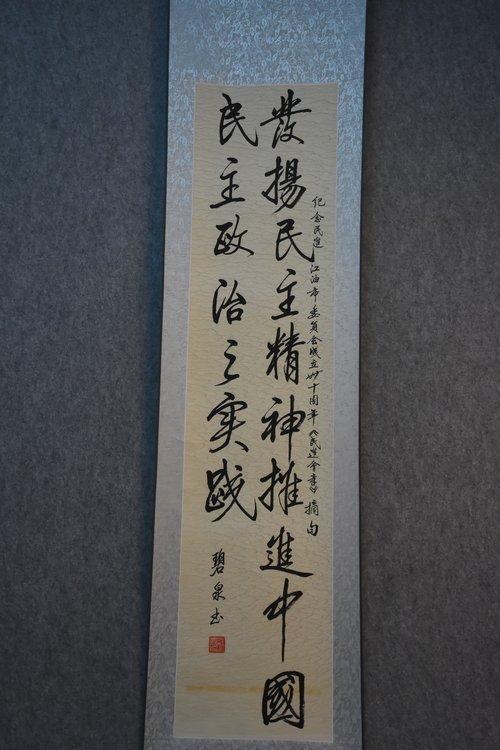 紀念民進江油市委員会成立卅十周年《民進会章》摘句
發揚民主精神推進中國
民主政治之实踐
碧泉书